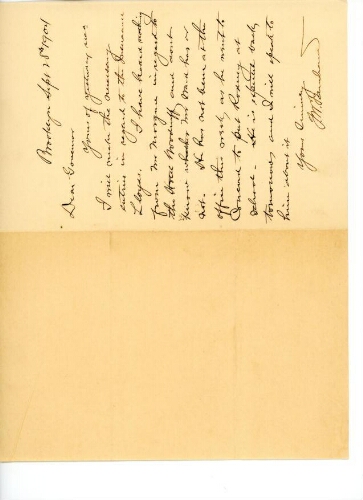 Brooklyn Sept 28th 1904
Dear Governor
Yours of yesterday rec
I will make the necessary
entries in regard to the Insurance
Lloyds. I have heard nothing
from Mr Morgan in regard to
the Hotel Woodruff and dont
know whether Mr Ward has or
not. He has not been at the
office this week, as he went to
Concord to put Rodney at
school. He is expected back
tomorrow, and I will speak to
him about it
Yours Sincerely